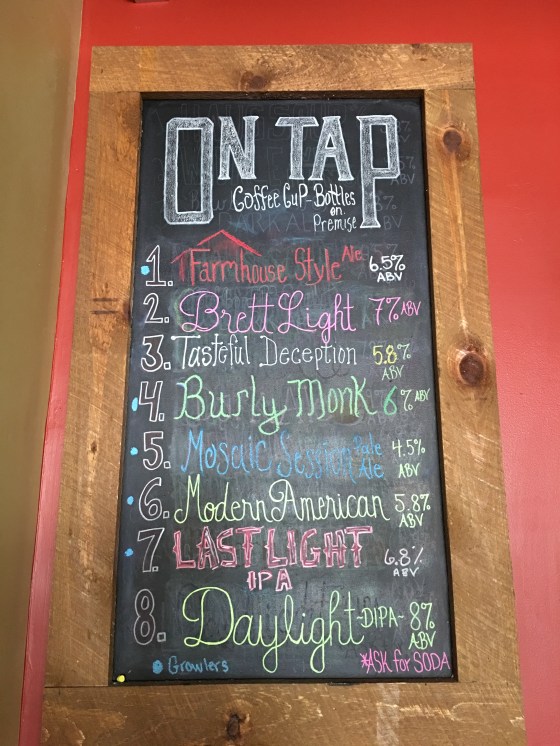 ON TAP
Coffee Cup - Bottles
on
Premise
1. Farmhouse Style Ale 6.5% ABV
2. Brett Light 7% ABV
3. Tasteful Deception 5.8% ABV
4. Burly Monk 6% ABV
5. Mosaic Session Pale Ale 4.5% ABV
6. Modern American 5.8% ABV
7. LAST LIGHT IPA 6.8% ABV
8. Daylight -DIPA- 8% ABV
Growlers
*ASK for SODA